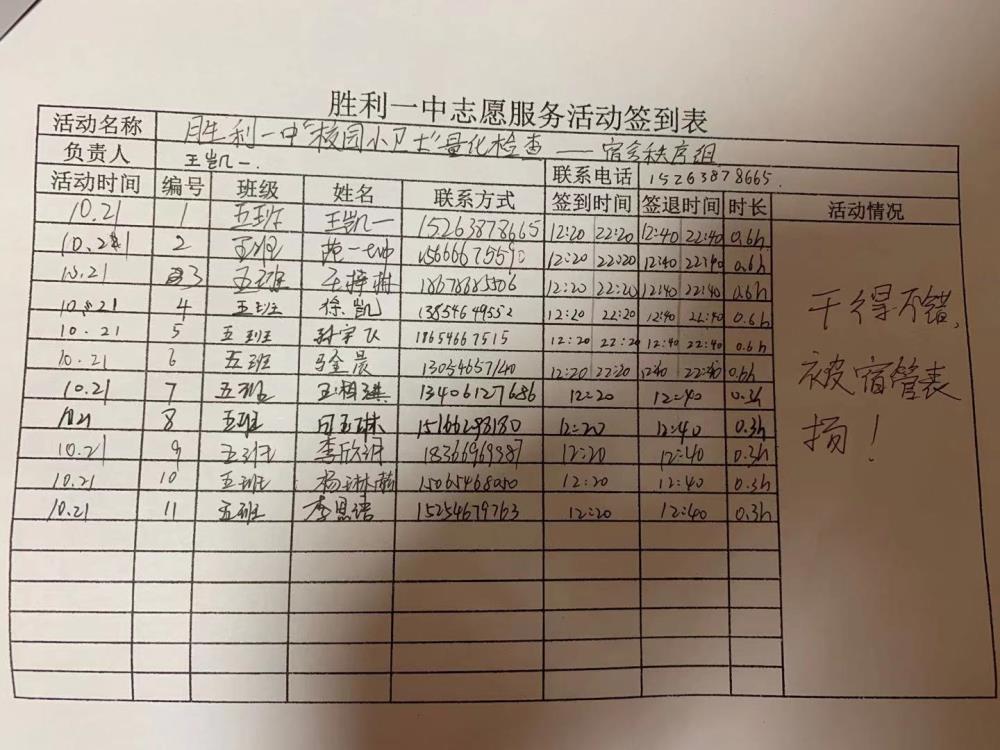 胜利一中志愿服务活动签到表
活动名称 胜利一中“校园小卫士”量化检查——宿舍秩序组
负责人 王凯一. 联系电话 15263878665.
活动时间 编号 班级 姓名 联系方式 签到时间 签退时间 时长 活动情况
10.21 1 五班 王凯一 15263878665 12:20 22:20 12:40 22:40 0.6h
10.21 2 五班 15666675590 12:20 22:20 12:40 22:40 0.6h
10.21 3 五班 18678885506 12:20 22:20 12:40 22:40 0.6h
10.21 4 五班 徐凯 13854649552 12:20 22:20 12:40 22:40 0.6h
10.21 5 五班 孙宇飞 18654667515 12:20 22:20 12:40 22:40 0.6h
10.21 6 五班 马金晨 13054657140 12:20 22:20 12:40 22:40 0.6h
10.21 7 五班 13406127686 12:20 12:40 0.3h
10.21 8 五班 15166298180 12:20 12:40 0.3h
10.21 9 五班 李欣玥 1836969387 12:20 12:40 0.3h
10.21 10 五班 15065468050 12:20 12:40 0.3h
10.21 11 五班 李思靖 15254679763 12:20 12:40 0.3h
干得不错,
被宿管表
扬!